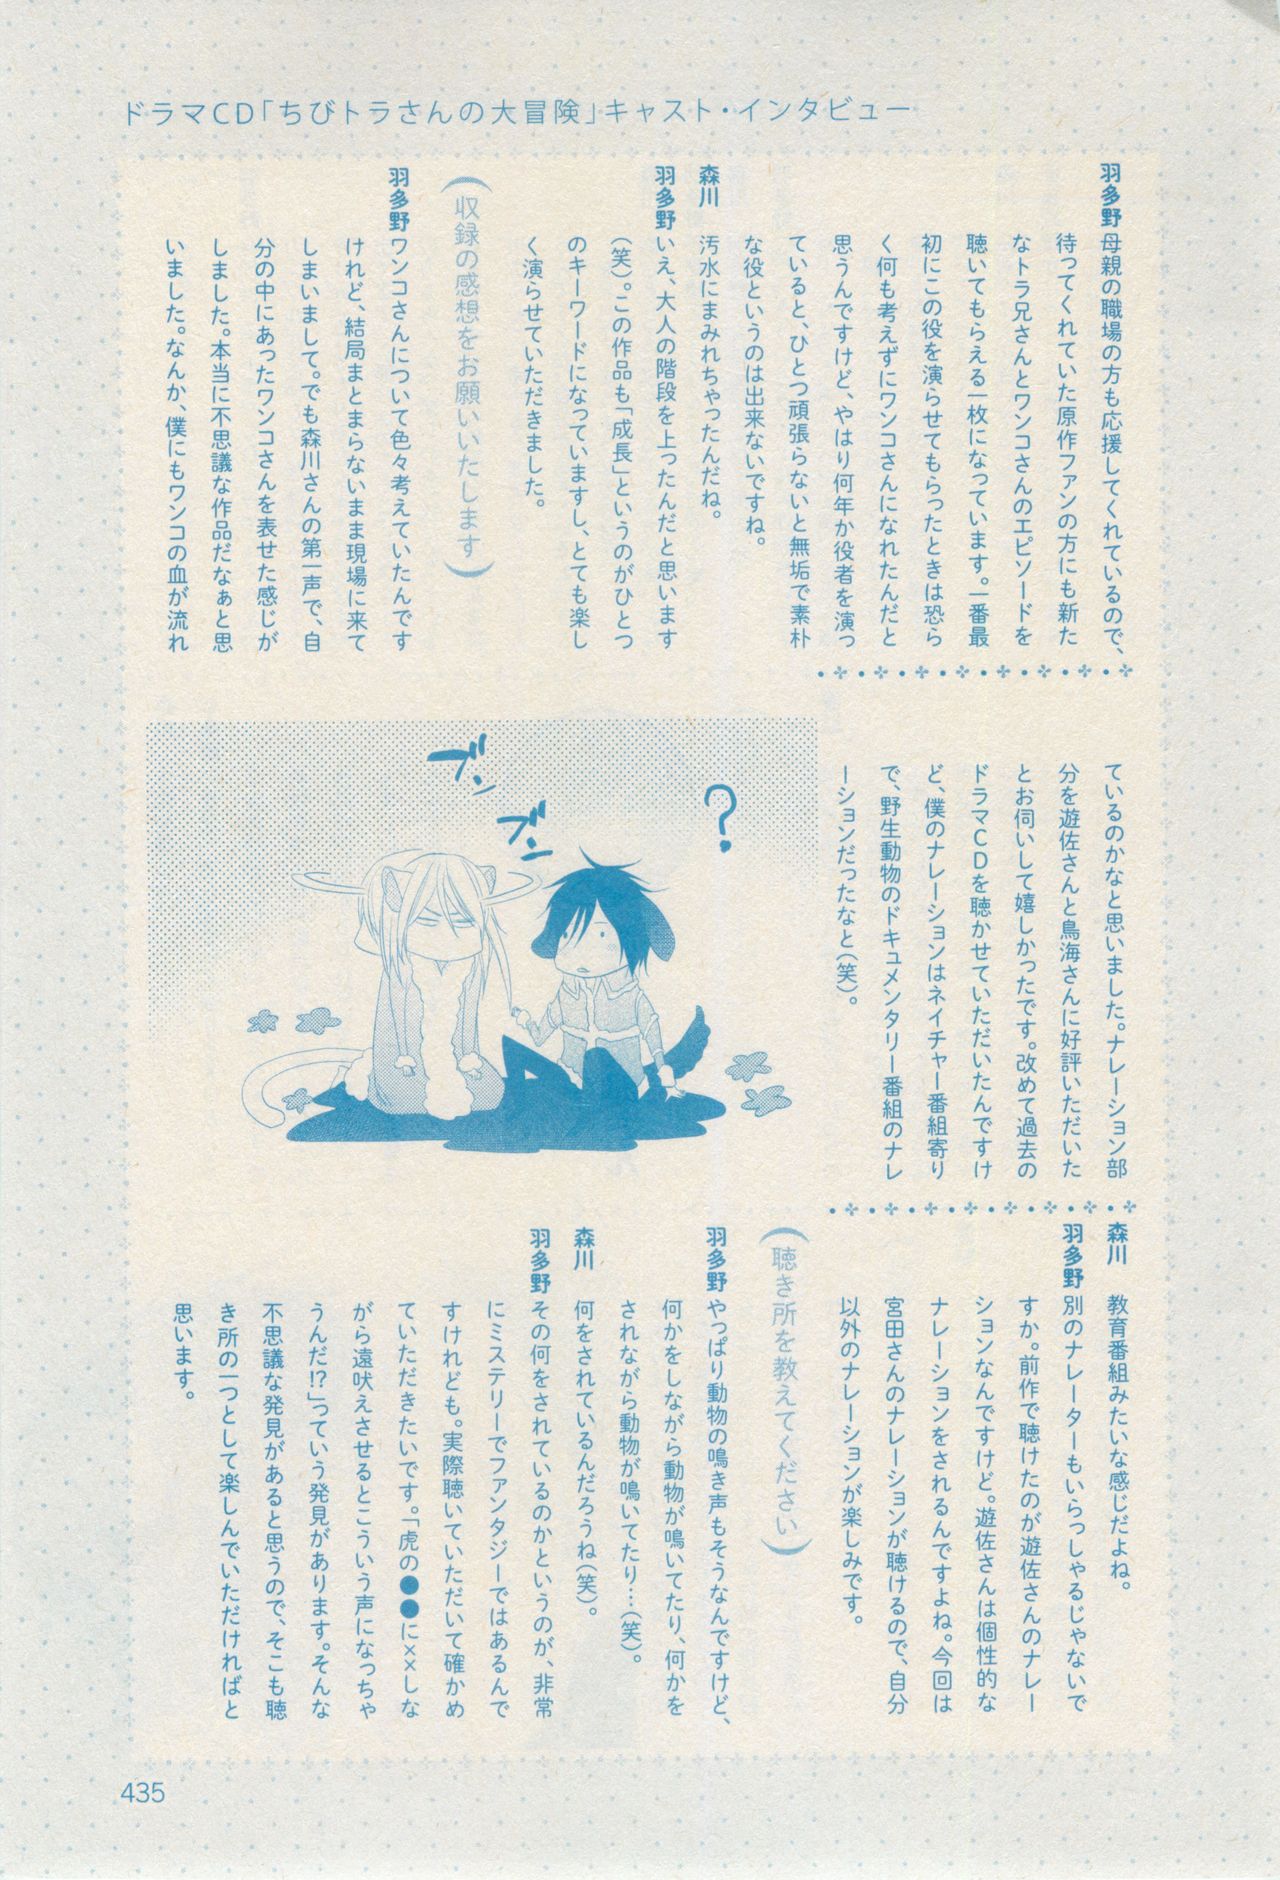 ドラマCD「ちびトラさんの大冒険」キャスト・インタビュー
羽多野 母親の職場の方も応援してくれているので、
待ってくれていた原作ファンの方にも新た
なトラ兄さんとワンコさんのエピソードを
聴いてもらえる一枚になっています。一番最
初にこの役を演らせてもらったときは恐ら
く何も考えずにワンコさんになれたんだと
思うんですけど、やはり何年か役者を演っ
ていると、ひとつ頑張らないと無垢で素朴
な役というのは出来ないですね。
森川 汚水にまみれちゃったんだね。
羽多野 いえ、大人の階段を上ったんだと思います
(笑)。この作品も「成長」というのがひとつ
のキーワードになっていますし、とても楽し
く演らせていただきました。
(収録の感想をお願いいたします)
羽多野 ワンコさんについて色々考えていたんです
けれど、結局まとまらないまま現場に来て
しまいまして。でも森川さんの第一声で、自
分の中にあったワンコさんを表せた感じが
しました。本当に不思議な作品だなぁと思
いました。なんか、僕にもワンコの血が流れ
ているのかなと思いました。ナレーション部
分を遊佐さんと鳥海さんに好評いただいた
とお伺いして嬉しかったです。改めて過去の
ドラマCDを聴かせていただいたんですけ
ど、僕のナレーションはネイチャー番組寄り
で、野生動物のドキュメンタリー番組のナレ
ーションだったなと(笑)。
?
ブン
ブン
森川 教育番組みたいな感じだよね。
羽多野 別のナレーターもいらっしゃるじゃないで
すか。前作で聴けたのが遊佐さんのナレー
ションなんですけど。遊佐さんは個性的な
ナレーションをされるんですよね。今回は
宮田さんのナレーションが聴けるので、自分
以外のナレーションが楽しみです。
(聴き所を教えてください)
羽多野 やっぱり動物の鳴き声もそうなんですけど、
何かをしながら動物が鳴いてたり、何かを
されながら動物が鳴いてたり…(笑)。
森川 何をされているんだろうね(笑)。
羽多野 その何をされているのかというのが、非常
にミステリーでファンタジーではあるんで
すけれども。実際聴いていただいて確かめ
ていただきたいです。「虎の●●に××しな
がら遠吠えさせるとこういう声になっちゃ
うんだ!?」っていう発見があります。そんな
不思議な発見があると思うので、そこも聴
き所の一つとして楽しんでいただければと
思います。
435